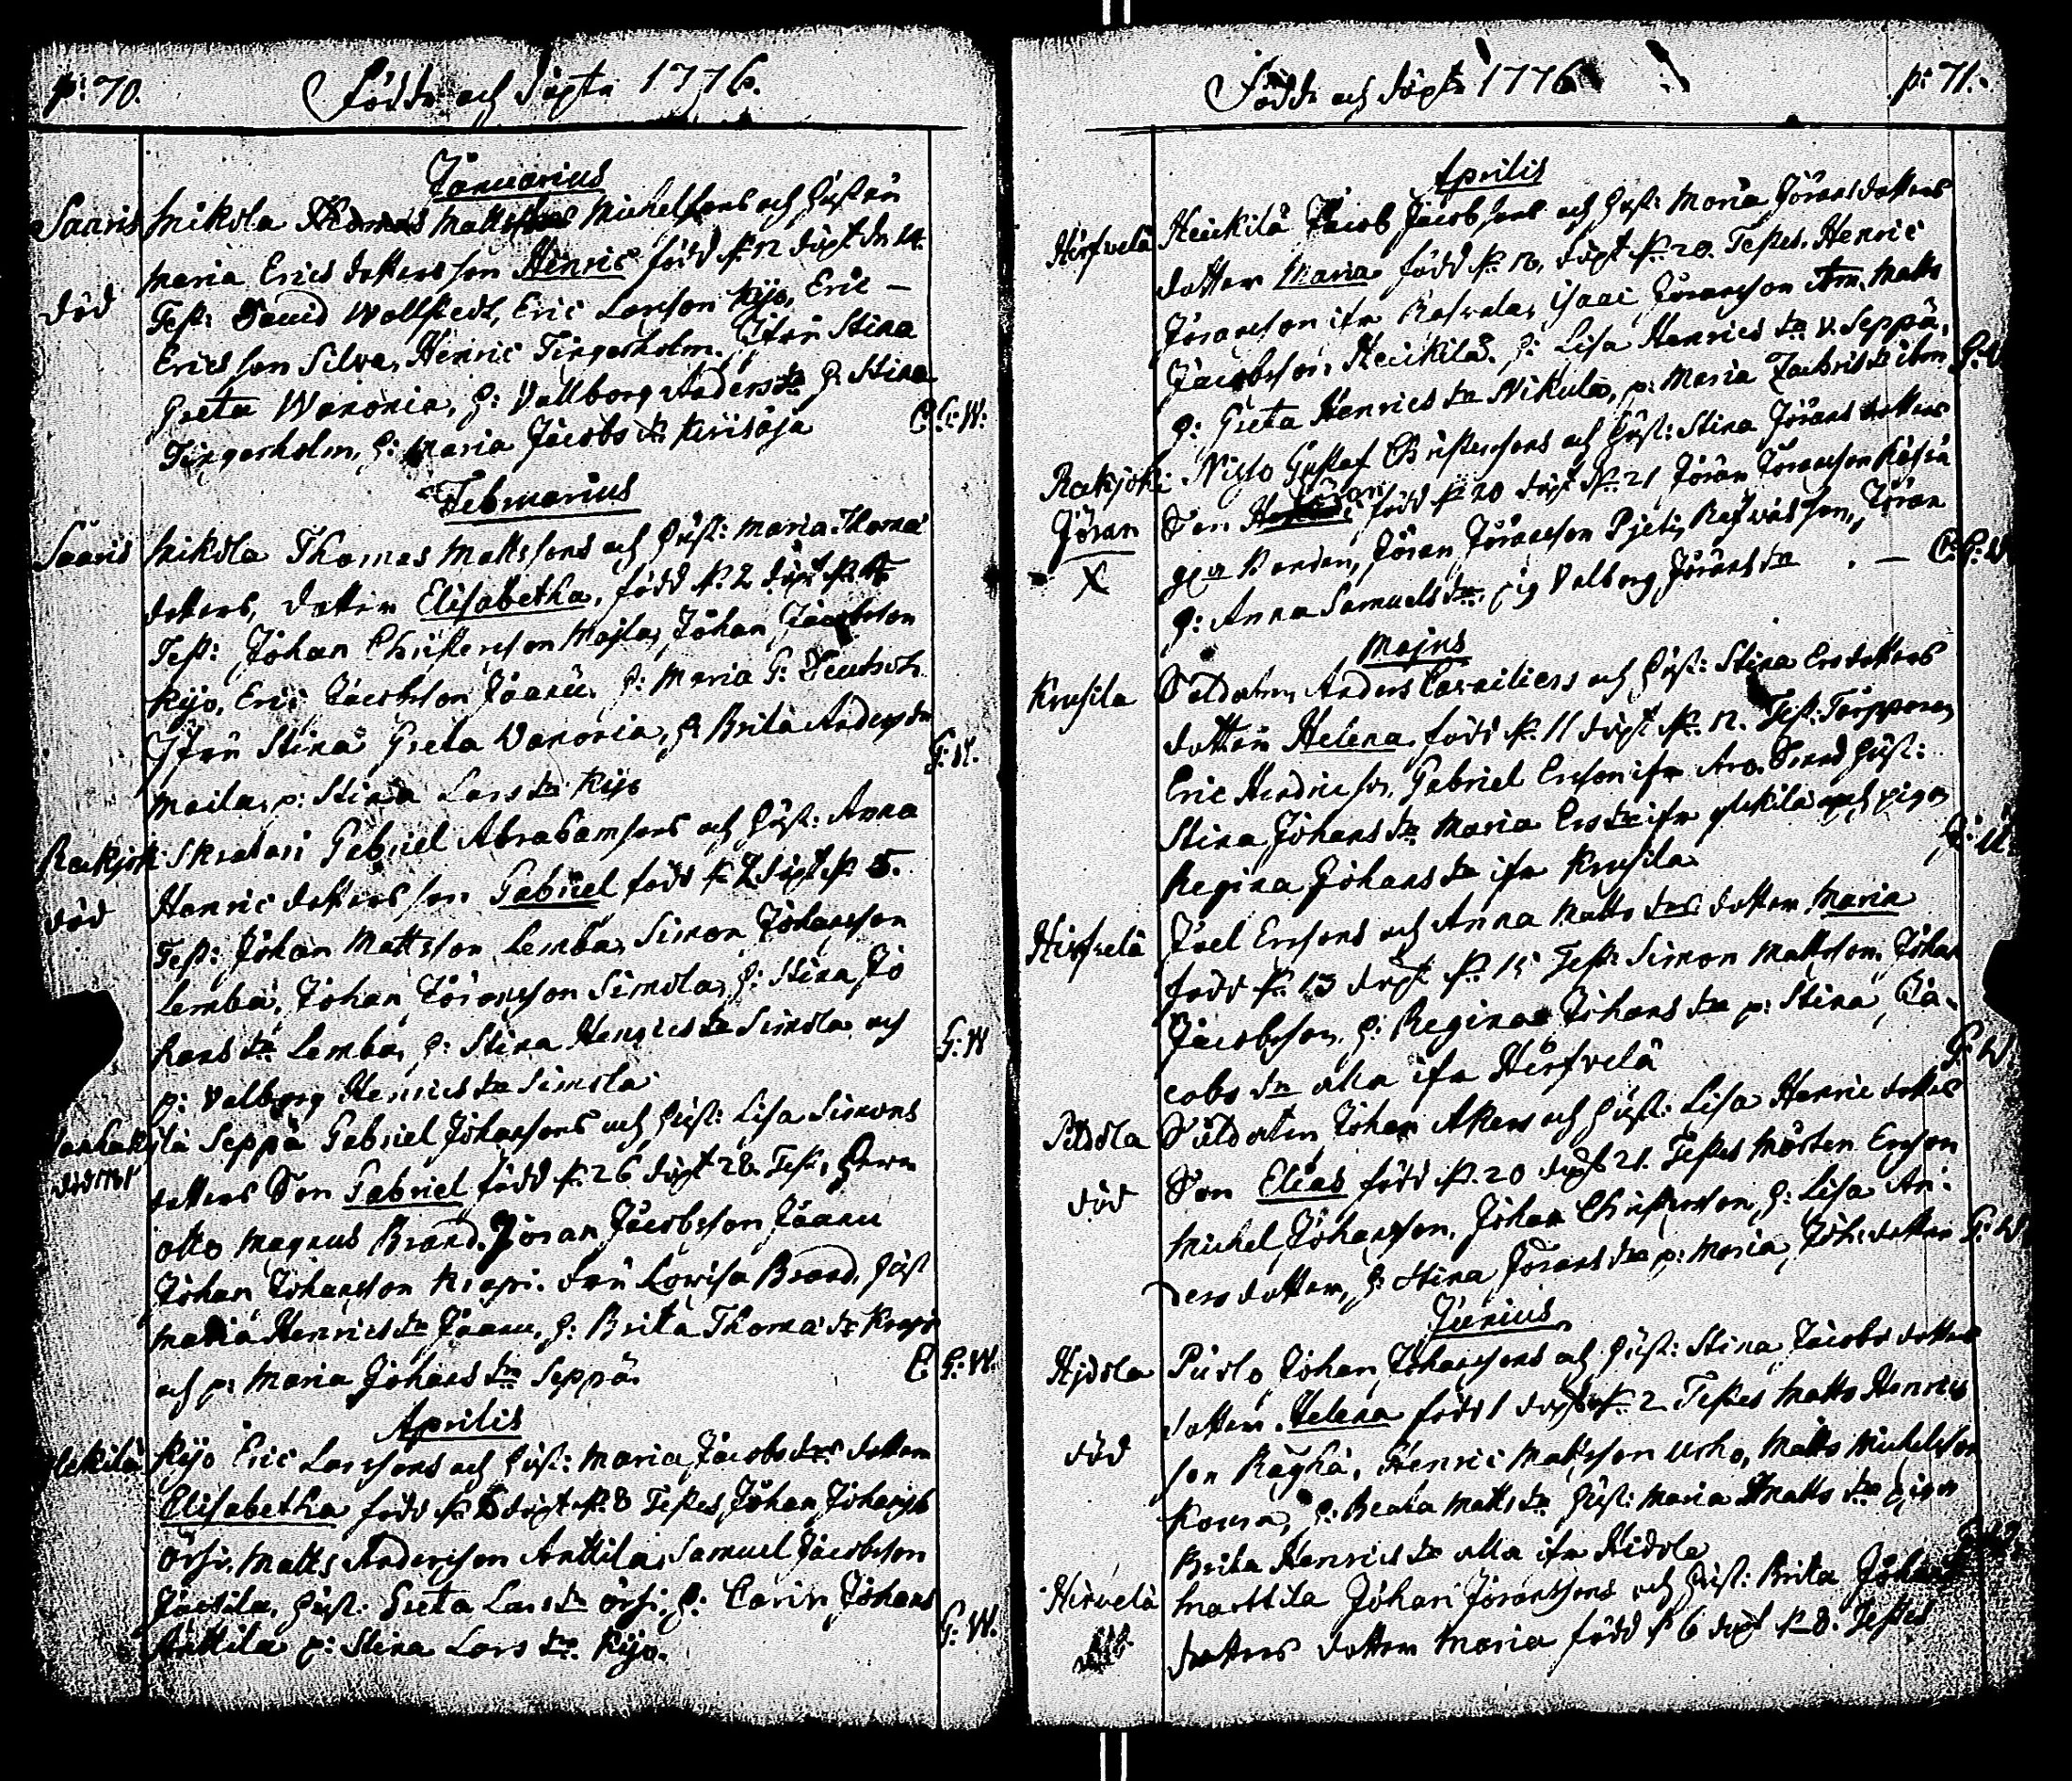 p: 70.
Födde och döpte 1776.
Januarius
Saaris Mikola Thomas Mattssons Michelssons och Hustru
Maria Erics dotters son Henric född d. 12 döpt d. 14.
död Test: David Wallstedt, Eric Larsson Kijo, Eric –
Ericsson Silva, Henric Tingerholm. Jfrn Stina
Greta Wanonia, h: Vallborg Anders dr h: Stina
Tingerholm, h: Maria Jacobs dr Kerisåja C: G: W:
Februarius
Saaris Mikola Thomas Mattssons och Hust: Maria Thomæ
dotters, dotter Elisabetha, född d. 2 döpt d.
Test: Johan Christersson Majla, Johan Jacobsson
Kijo, Eric Jacobsson Jaanu. h: Maria G: Teutsch
Jfrn Stina Greta Wanonia, h: Brita Anders dr
Maila, p: Stina Lars dr Kijo G: W.
Rakjoki Skratari Gabriel Abrahamsons och Hust: Anna
Henric dotters son Gabriel född d. 2 döpt d. 5.
död Test: Johan Mattsson Lemba, Simon Johansson
Lemba, Johan Jöransson Simola, h: Stina Jo
hans dr Lemba, h: Stina Henrics dr Simola och
p: Valborg Henrics dr Simola G: W
Seppä Gabriel Johansons och Hust: Lisa Simons
död dotters Son Gabriel född d. 26 döpt 28. Test, Herr
Otto Magnus Brand. Jöran Jacobsson Jaanu
Johan Johansson Krapi. Fru Lowisa Brand, Hust
Maria Henrics dr Jaanu, h: Brita Thomæ dr Krapi
och p: Maria Johans dr Seppä. C G: W.
Aprilis
Kijo Eric Larssons och Hust: Maria Jacobs drs dotter
Elisabetha född d. döpt d. 8 Testes Johan Johanss
Örsi, Matts Andersson Anttila, Samuel Jacobsson
Jacsila, Hust: Greta Lars dr Örsi, h: Carin Johans
Anttila p: Stina Lars dr Kijo. G: W.
Födde och döpte 1776 p: 71.
Aprilis
Hirfvelä Heickilä Jacob Jacobsons och Hust: Maria Jörans dotters
dotter Maria född d. 16, döpt d. 20. Testes. Henric
Jöransson ifr Rasvala, Isaac Jöransson Matts
Jacobsson, Heickilä. h: Lisa Henrics dr v. Seppä,
h: Greta Henrics dr Nikula, p: Maria Zachris dr ibm G: W
Rakjoki Nislo Gustaf Christerssons och Hust: Stina Jörans dotters
Jöran Son Jöran född d. 20 döpt d. 21 Jöran Jöransson
X Jöran Jöransson
h: Anna Samuels dr, pig Valborg Jörans dr . – C: G: W
Majus
Krusila Soldaten Anders Carniliers och Hust: Stina Ers dotters
dotter Helena, född d. 11 döpt d. 12. Test: Torpparen
Eric Hendricsson, Gabriel Ersson ifr Aro. Hust:
Stina Johans dr Maria Ers dr ifr Ylekilä och pigan
Regina Johans dr ifr Krusila
Hirfvelä Joel Erssons och Anna Matts drs dotter Maria
född d. 13 döpt d. 15 Test: Simon Mattsson, Johan
Jacobsson, h: Regina Johans dr p: Stina Ja-
cobs dr alla ifr Hirfvelä G: W
Pidola Soldaten Johan Akers och Hust: Lisa Henric dotters
Son Elias född d. 20 döpt 21. Testes Mårten Ersson
död Michel Johansson, Johan Christersson, h: Lisa An-
ders dotter, h: Stina Jörans dr p: Maria Joh: dotter G: W
Junius
Hidola Pislo Johan Johanssons och Hust: Stina Jacobs dotters
dotter Helena född 1 döpt d. 2 Testes Matts Henrics
död son Raghå, Henric Mattsson Urho, Matts Michelsson
Kousa, h: Beata Matts dr Hust: Maria Matts dr Pigan
Brita Henrics dr alla ifr Hidola
Hirvelä Marttila Johan Jöranssons och Hust: Brita Johans
dotters dotter Maria född d. 6 döpt d. 8. Testes